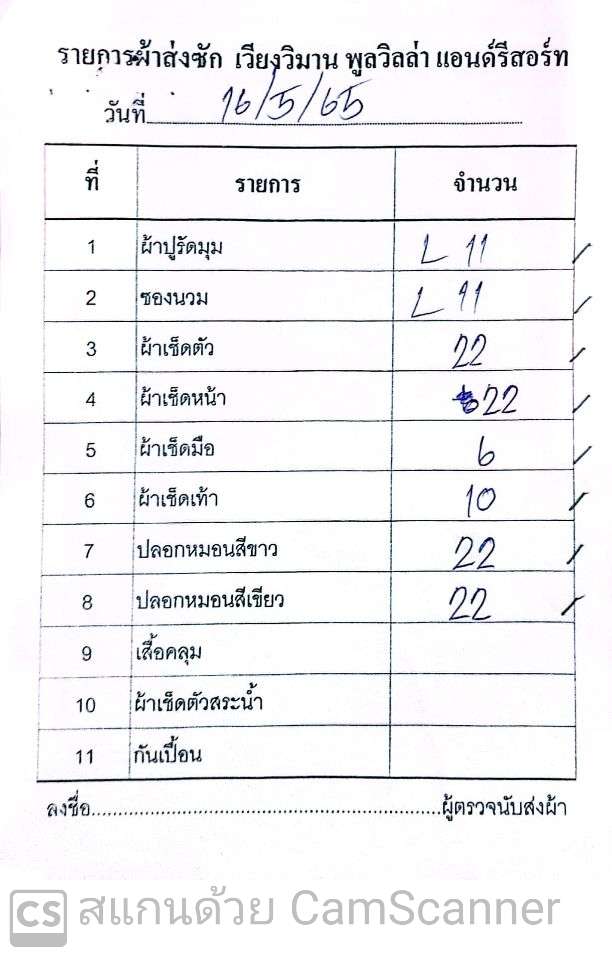 รายการผ้าส่งซัก เวียงวิมาน พูลวิลล่า แอนด์รีสอร์ท
วันที่ 16/5/65
ที่ รายการ จำนวน
1 ผ้าปูรัดมุม L 11
2 ซองนวม L 11
3 ผ้าเช็ดตัว 22
4 ผ้าเช็ดหน้า 22
5 ผ้าเช็ดมือ 6
6 ผ้าเช็ดเท้า 10
7 ปลอกหมอนสีขาว 22
8 ปลอกหมอนสีเขียว 22
9 เสื้อคลุม
10 ผ้าเช็ดตัวสระน้ำ
11 กันเปื้อน
ลงชื่อ.......................................................ผู้ตรวจนับส่งผ้า
CS สแกนด้วย CamScanner